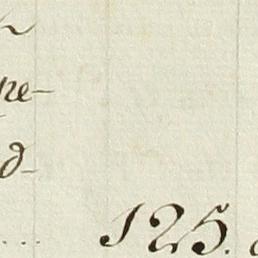 ne-
d-
... 125.